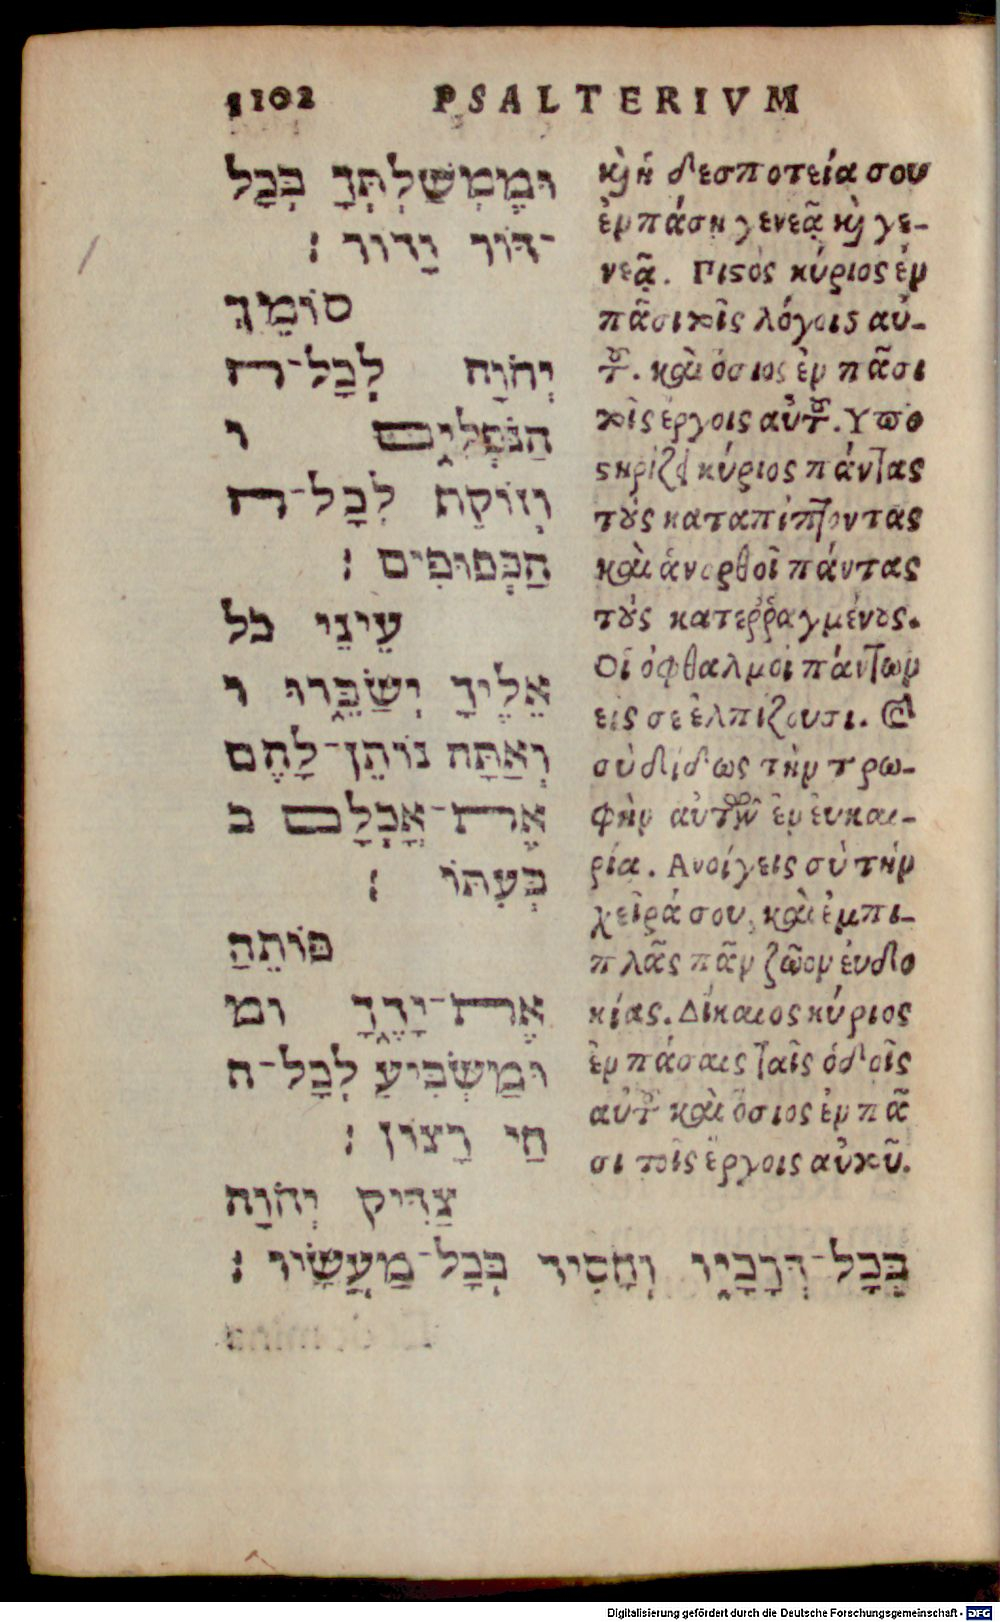 5102 PSALTERIVM
וּמֶמְשַׁלְתְּךָ בְּכָל
־דּוֹר וָדוֹר ׃
סוֹמֵךְ
יְהוָֹה לְכָל־ה
הַנֹּפְלִים ו
וְזוֹקֵף לְכָל־ה
הַכְּפוּפִים ׃
עֵינֵי כל
אֵלֶיךָ יְשַׂבֵּרוּ ו
וְאַתָּה נוֹתֵן־לָהֶם
אֶת־אָכְלָם ב
בְּעִתּוֹ ׃
פּוֹתֵחַ
אֶת־יָדֶךָ ומ
וּמַשְׂבִּיעַ לְכָל־ח
חַי רָצוֹן ׃
צַדִּיק יְהוָֹה
בְּכָל־דְּרָכָיו וְחָסִיד בְּכָל־מַעֲשָׂיו ׃
καὶ ἡ δεσποτεία σου
ἐν πάσῃ γενεᾷ καὶ γε-
νεᾷ. Πιστὸς κύριος ἐν
πᾶσι τοῖς λόγοις αὐ-
τοῦ. καὶ ὅσιος ἐν πᾶσι
τοῖς ἔργοις αὐτοῦ. Υπο
στηρίζει κύριος πάντας
τοὺς καταπίπτοντας
καὶ ἀνορθοῖ πάντας
τοὺς κατεῤῥαγμένους.
Οἱ ὀφθαλμοὶ πάντων
εις σε ἐλπίζουσι. καὶ
σὺ δίδως τὴν τρω-
φὴν αὐτῶν ἐν ἐυκαι-
ρία. Ανοίγεις σὺ τὴν
χεῖρά σου, καὶ ἐμπι-
πλᾶς πᾶν ζῶον ἐυδο
κίας. Δίκαιος κύριος
ἐν πάσαις ταῖς ὁδοῖς
αὐτοῦ καὶ ὅσιος ἐν πᾶ
σι τοῖς ἔργοις αὐτοῦ.
Digitalisierung gefördert durch die Deutsche Forschungsgemeinschaft - DFG